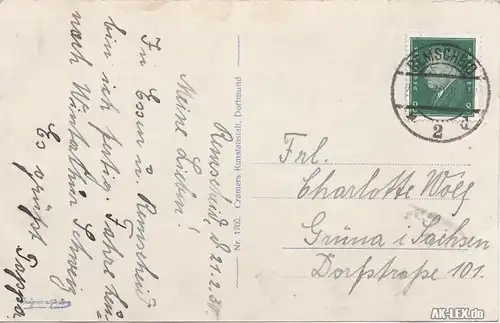 Remscheid, 21.2.30.
Meine Lieben!
In Essen u. Remscheid
bin ich fertig. Fahre heu-
nach Winterthur Schweiz
Es grüßt Pappa.
Nr. 1780. Cramers Kunstanstalt, Dortmund
REMSCHEID
2
Frl.
Charlotte Wolf
Grüna i Sachsen
Dorfstraße 101.
AK-LEX.de